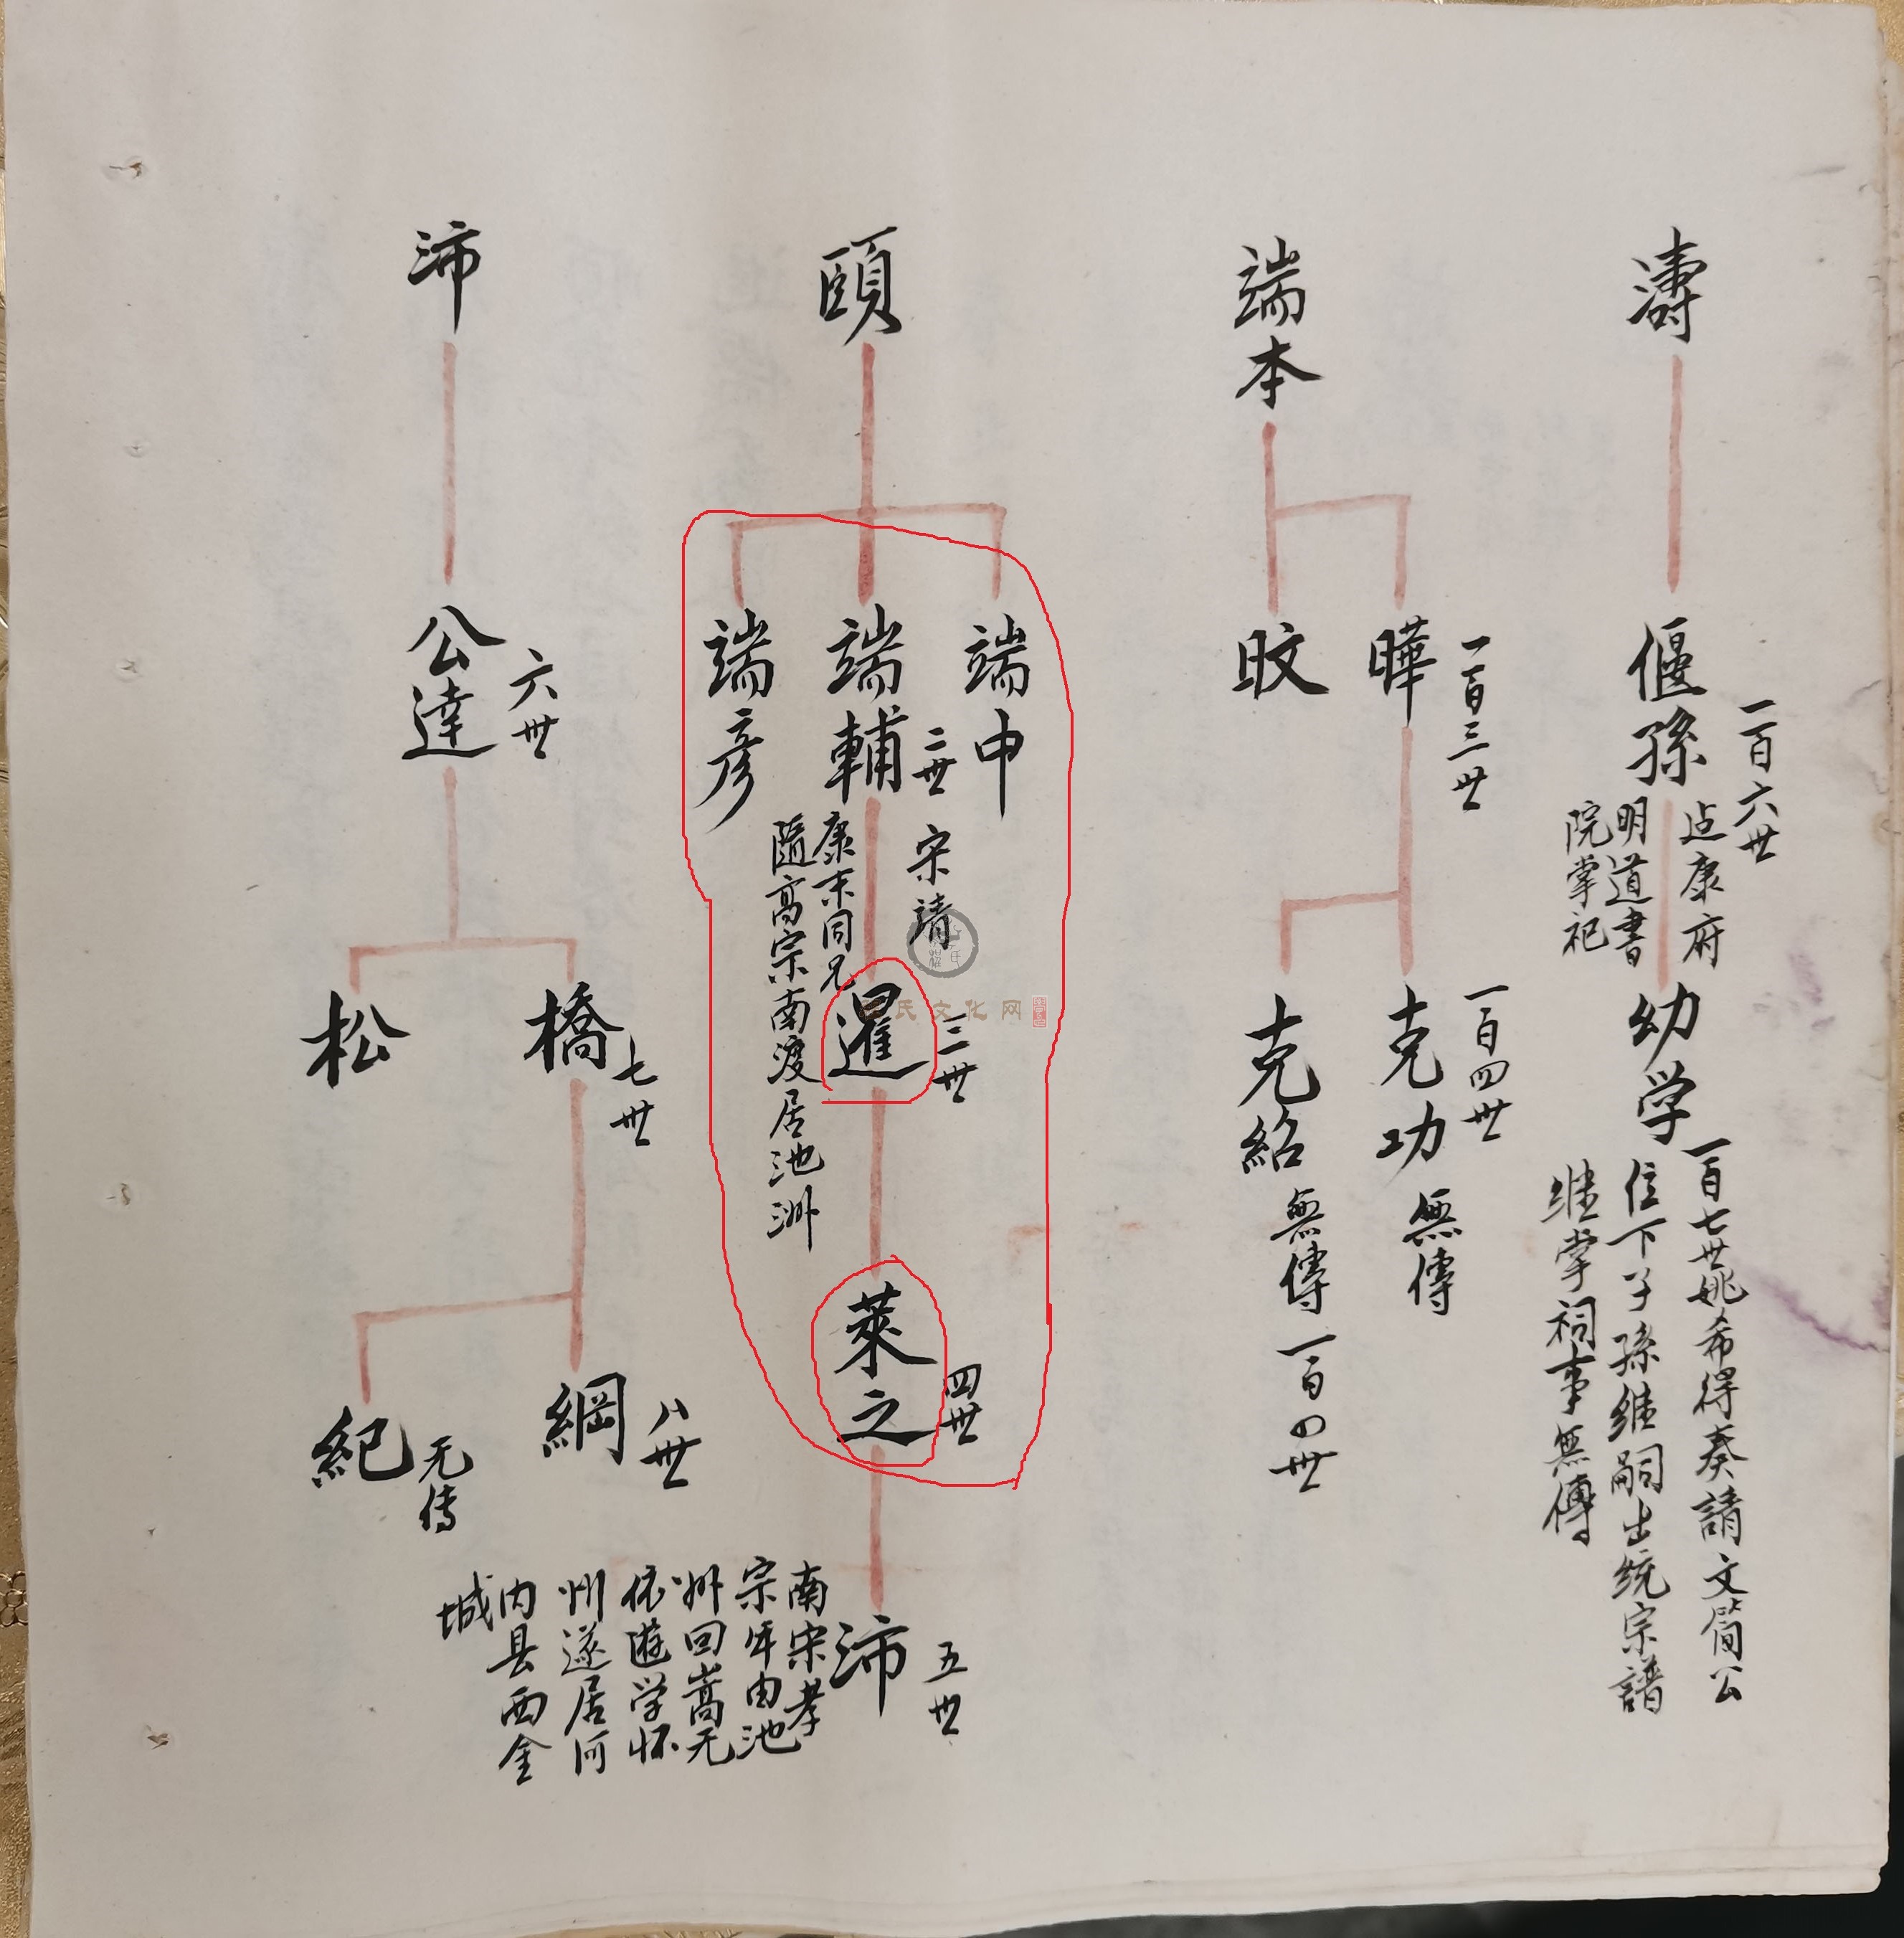 濤
偃孫
一百六世
康府
明道書
院掌祀
幼学
一百七世姚希得奏請文简公
位下子孫继嗣出统宗譜
继掌祠事無傳
端本
曄
一百三世
旼
克功
一百四世
無傳
克紹
無傳一百四世
頤
端中
端輔
二世
宋靖
康末同兄
隨高宗南渡居池洲
端彦
暹
三世
萊之
四世
沛
五世
南宋孝
宗年由池
州回嵩无
依遊学怀
州遂居河
内县西金
城
沛
公達
六世
橋
七世
松
綱
八世
紀
无传
氏文化网